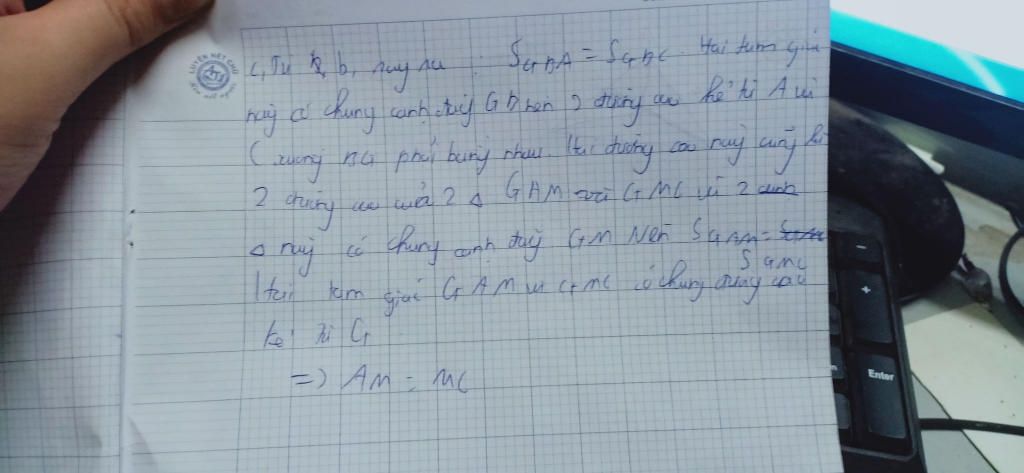 c, Từ b, suy ra : SGBA = SGBC. Hai tam giác
này có chung cạnh đáy GB nên 2 đường cao kẻ từ A và
C xuống BG phải bằng nhau. Hai đường cao này cũng là
2 đường cao của 2 Δ GAM và GMC vì 2
Δ này có chung cạnh đáy GM Nên SGAM =
SGMC
Hai tam giác GAM và GMC có chung đường cao
kẻ từ G
=> AM = MC
LUYỆN NÉT CHỮ
Enter